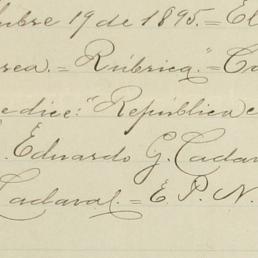 ubre 19 de 1895. = El
rea. = Rúbrica." = Co
e dice: "República
. Eduardo G. Cadav
Cadaval. = E. P. N.